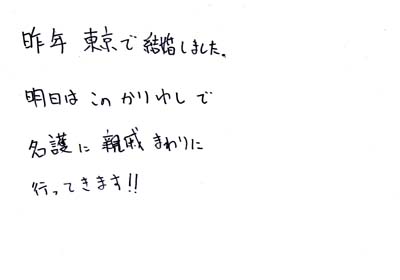 昨年 東京で結婚しました。
明日は このかりゆしで
名護に 親戚まわりに
行ってきます!!